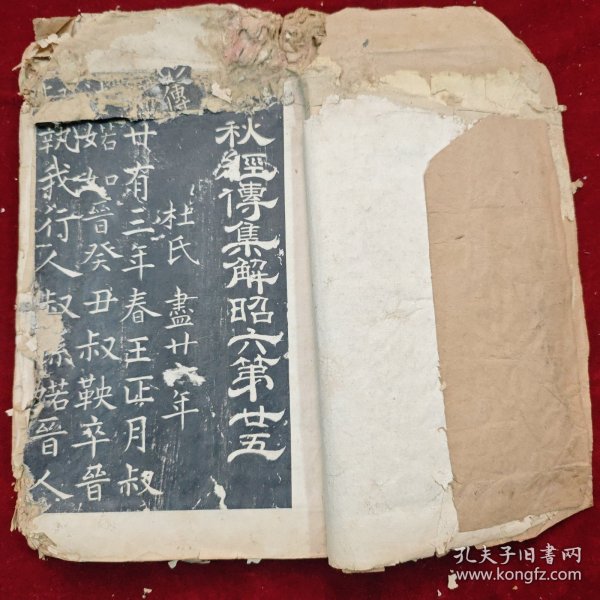 秋經傳集解昭六第廿五
傳
杜氏 盡廿六年
廿有三年春王正月叔
婼如晉癸丑叔鞅卒晉
執我行人叔孫婼晉人
孔夫子旧书网
www.kongfz.com